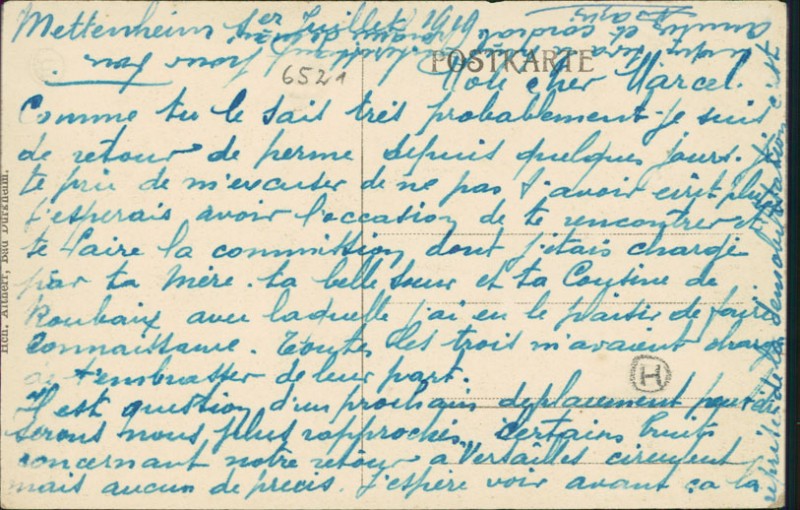 Mettenheim 1er Juillet 1919
POSTKARTE
6521
Mon cher Marcel.
Comme tu le sais très probablement je suis
de retour de perme depuis quelques jours. Je
te prie de m'excuser de ne pas t'avoir écrit plus
j'esperais avoir l'occasion de te rencontrer et
te faire la commission dont j'étais chargé
par ta mère. ta belle soeur et ta Cousine de
Roubaix avec laquelle j'ai eu le plaisir de faire
connaissance. Toutes les trois m'avaient chargé
de t'embrasser de leur part.
H
Il est question d'un prochain deplacement peut-être
serons nous plus rapprochés, certains bruits
concernant notre retour a Versailles circulent
mais aucun de precis. J'espère voir avant ça la
de la demobilisation
Hch. Altherr, Bad Dürkheim.